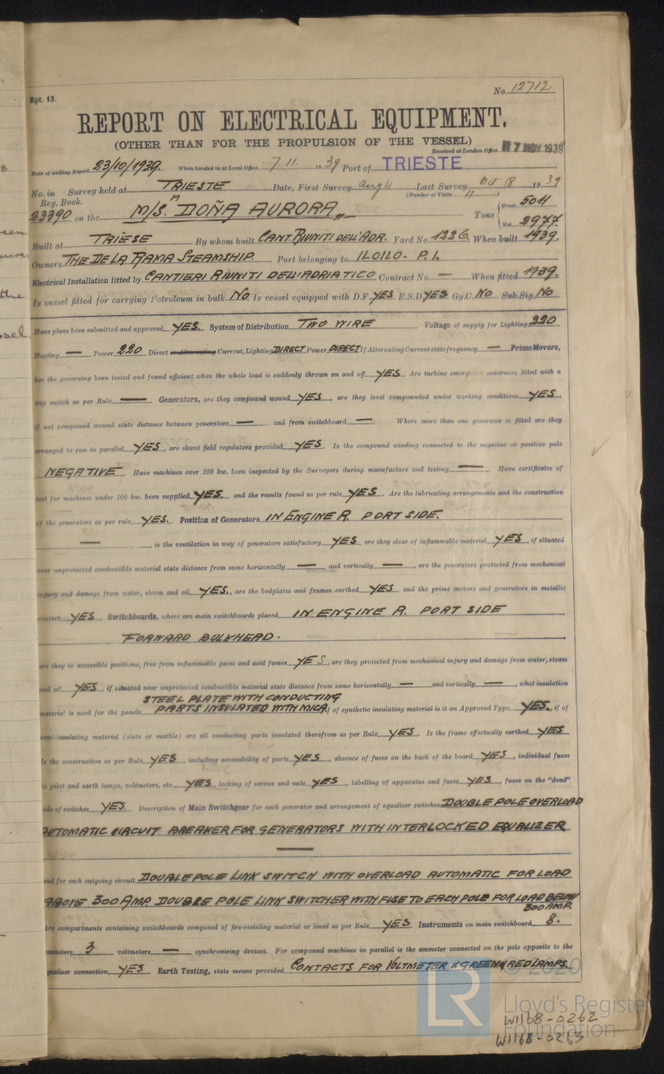 Rpt. 13.
No. 12712
REPORT ON ELECTRICAL EQUIPMENT.
(OTHER THAN FOR THE PROPULSION OF THE VESSEL)
Received at London Office 7 NOV 1939
Date of writing Report 23/10/1939. When handed in at Local Office 7.11. 1939 Port of TRIESTE
No. in Survey held at TRIESTE Date, First Survey Aug 4 Last Survey Oct 18 1939
Reg. Book. (Number of Visits 11)
23390 on the M/S. "DOÑA AURORA" Tons Gross 5011 Net 2977
Built at TRIESE By whom built CANT. RIUNITI DELL'ADR. Yard No. 1226 When built 1939.
Owners THE DE LA RAMA STEAMSHIP. Port belonging to ILOILO. P.I.
Electrical Installation fitted by CANTIERI RIUNITI DELL'ADRIATICO Contract No. — When fitted 1939.
Is vessel fitted for carrying Petroleum in bulk NO Is vessel equipped with D.F. YES E.S.D YES Gy.C. NO Sub.Sig. NO
Have plans been submitted and approved YES. System of Distribution TWO WIRE Voltage of supply for Lighting 220
Heating — Power 220 Direct or Alternating Current, Lighting DIRECT Power DIRECT If Alternating Current state frequency — Prime Movers,
has the governing been tested and found efficient when the whole load is suddenly thrown on and off YES Are turbine emergency governors fitted with a
trip switch as per Rule — Generators, are they compound wound YES are they level compounded under working conditions YES
if not compound wound state distance between generators — and from switchboard — Where more than one generator is fitted are they
arranged to run in parallel YES, are shunt field regulators provided YES Is the compound winding connected to the negative or positive pole
NEGATIVE Have machines over 100 kw. been inspected by the Surveyors during manufacture and testing — Have certificates of
test for machines under 100 kw. been supplied YES and the results found as per rule YES Are the lubricating arrangements and the construction
of the generators as per rule YES. Position of Generators IN ENGINE R. PORT SIDE.
—, is the ventilation in way of generators satisfactory YES are they clear of inflammable material YES, if situated
near unprotected combustible material state distance from same horizontally — and vertically —, are the generators protected from mechanical
injury and damage from water, steam and oil YES, are the bedplates and frames earthed YES and the prime movers and generators in metallic
contact YES Switchboards, where are main switchboards placed IN ENGINE R. PORT SIDE
FORWARD BULKHEAD.
are they in accessible positions, free from inflammable gases and acid fumes YES, are they protected from mechanical injury and damage from water, steam
and oil YES, if situated near unprotected combustible material state distance from same horizontally — and vertically —, what insulation
material is used for the panels STEEL PLATE WITH CONDUCTING PARTS INSULATED WITH MICA, if of synthetic insulating material is it an Approved Type YES, if of
semi-insulating material (slate or marble) are all conducting parts insulated therefrom as per Rule YES Is the frame effectually earthed YES
Is the construction as per Rule YES, including accessibility of parts YES, absence of fuses on the back of the board YES, individual fuses
to pilot and earth lamps, voltmeters, etc. YES locking of screws and nuts YES, labelling of apparatus and fuses YES, fuses on the "dead"
side of switches YES. Description of Main Switchgear for each generator and arrangement of equaliser switches DOUBLE POLE OVERLOAD
AUTOMATIC CIRCUIT BREAKER FOR GENERATORS WITH INTERLOCKED EQUALIZER
—
and for each outgoing circuit DOUBLE POLE LINK SWITCH WITH OVERLOAD AUTOMATIC FOR LOAD
ABOVE 300 AMP. DOUBLE POLE LINK SWITCHER WITH FUSE TO EACH POLE FOR LOAD BELOW
300 AMP.
Are compartments containing switchboards composed of fire-resisting material or lined as per Rule YES Instruments on main switchboard 8.
ammeters 3 voltmeters — synchronising devices. For compound machines in parallel is the ammeter connected on the pole opposite to the
equaliser connection YES Earth Testing, state means provided CONTACTS FOR VOLTMETER & GREEN & RED LAMPS.
© 2020
LR
Lloyd's Register
Foundation
W1168-0262
W1168-0263